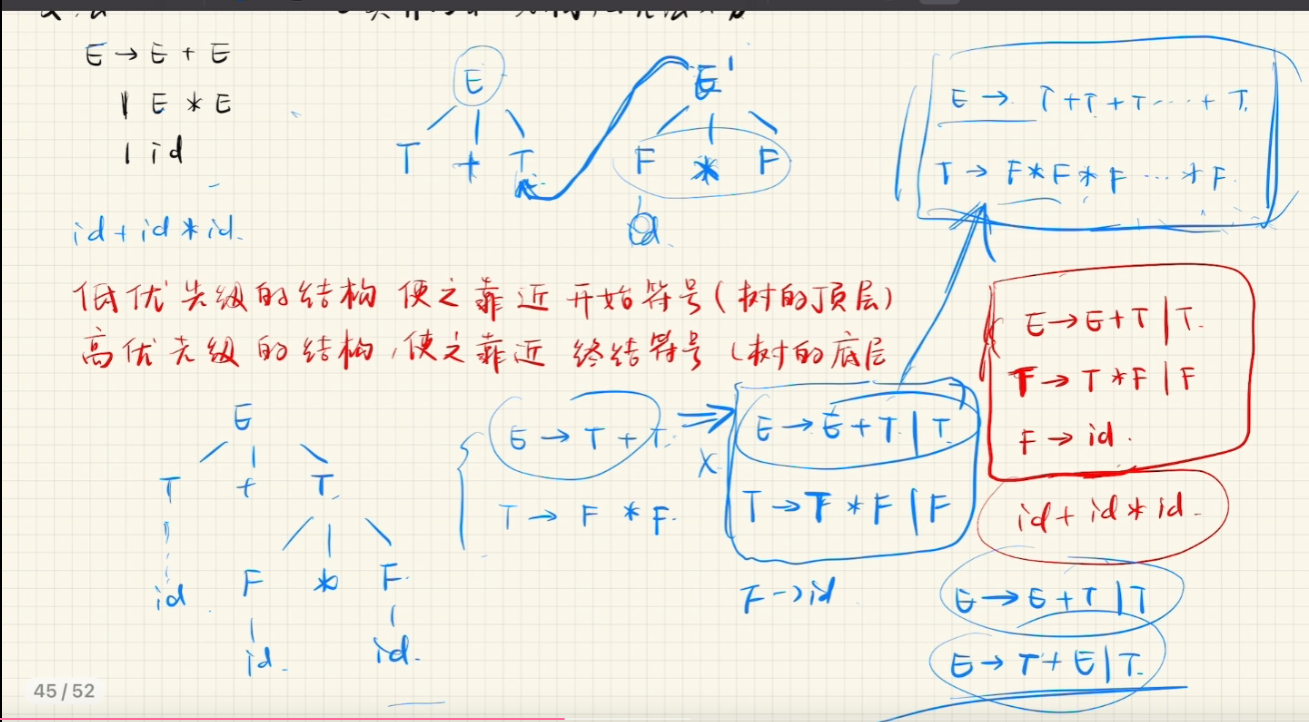 E → E + E
| E * E
| id
id + id * id.
E
T + T
E'
F * F
id.
E → T + T + T ... + T.
T → F * F * F ... * F.
低优先级的结构 使之靠近 开始符号 (树的顶层)
高优先级的结构, 使之靠近 终结符号 (树的底层
E
T + T.
id F * F.
id. id.
E → T + T.
T → F * F.
⇒
x
E → E + T | T
T → T * F | F
F → id
E → E + T | T.
T → T * F | F
F → id.
id + id * id.
E → E + T | T
E → T + E | T.
45 / 52